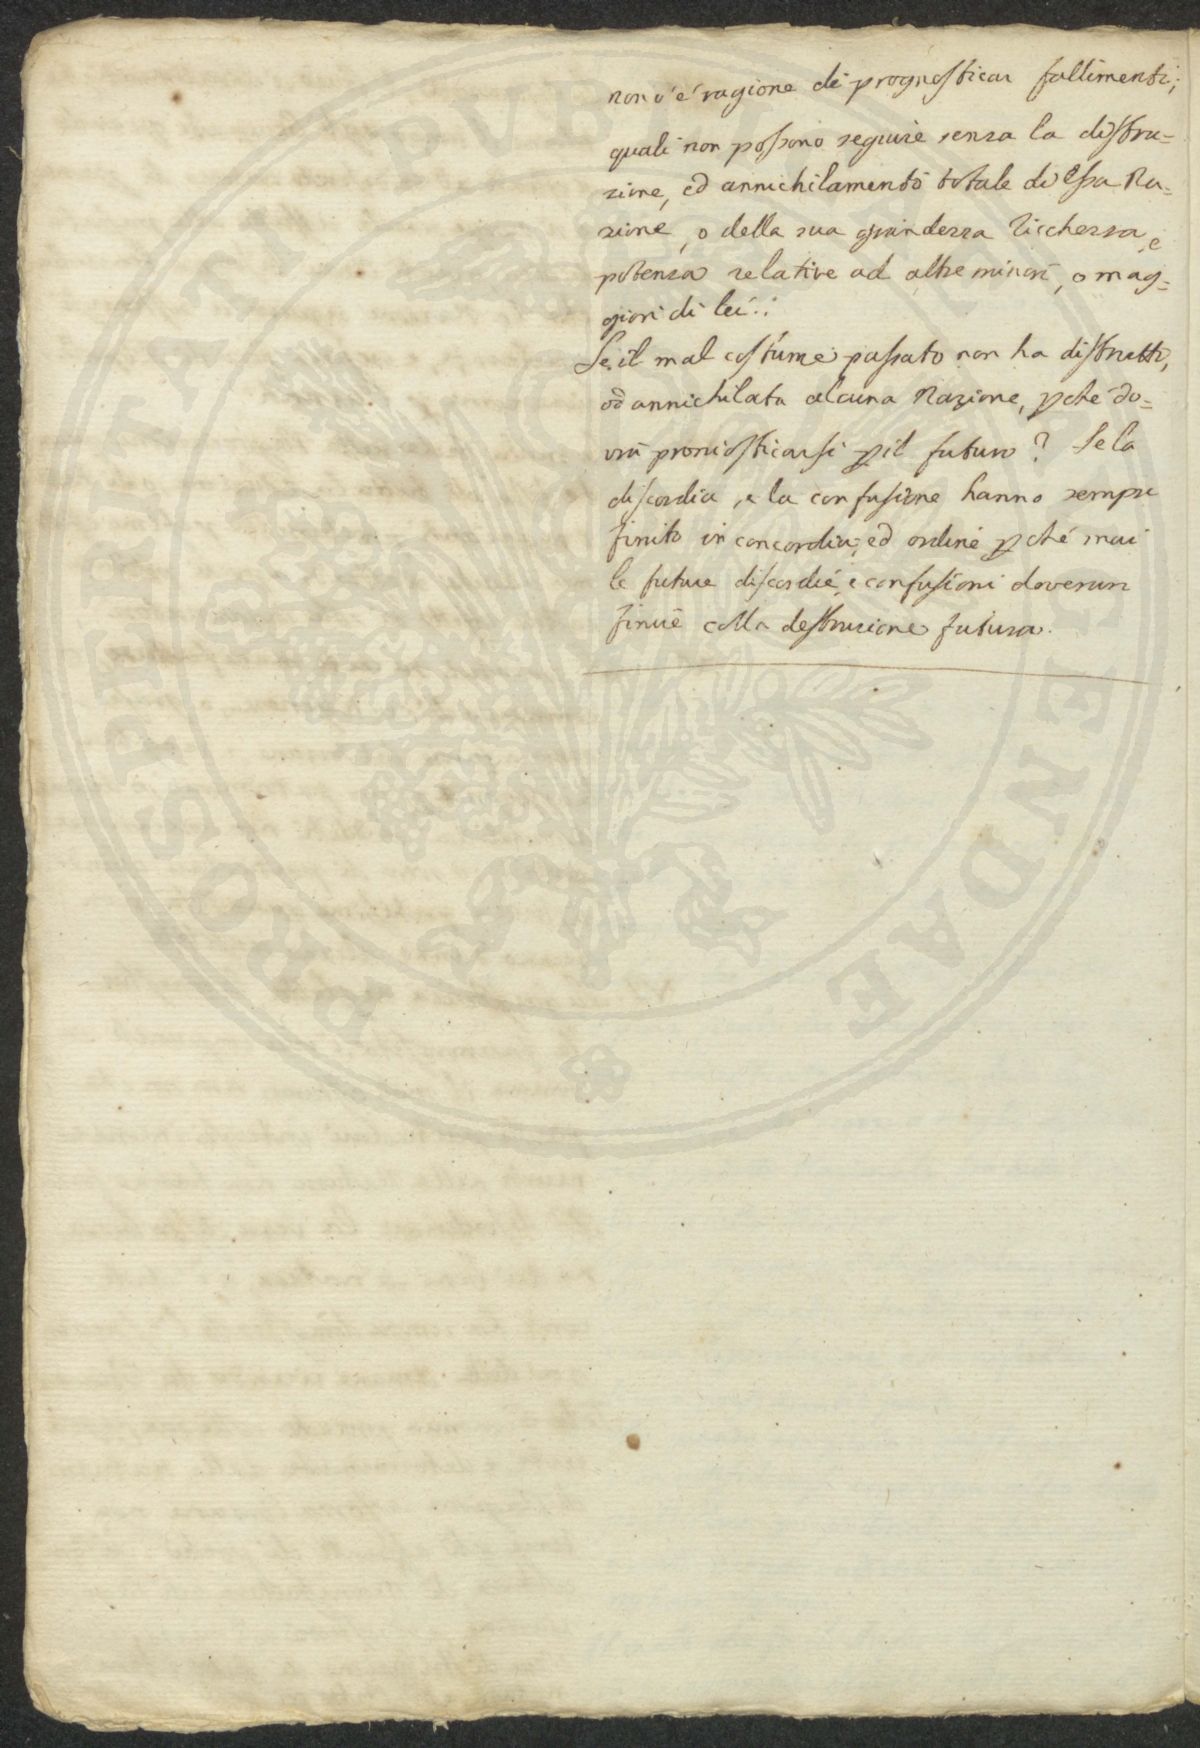 non v'è ragione di prognosticar fallimenti;
quali non possono seguire senza la distru=
zione, ed annichilamento totale di essa Na=
zione, o della sua grandezza ricchezza, e
potenza relative ad altre minori, o mag=
giori di lei.:
Se il mal costume passato non ha distrutto,
od annichilata alcuna Nazione, pché do=
vrà pronosticarsi p il futuro? Se la
discordia, e la confusione hanno sempre
finito in concordia, ed ordine pché mai
le future discordie, e confusioni doveran
finire colla destruzione futura.
PROSPERITATI PUBLICAE AUGENDAE